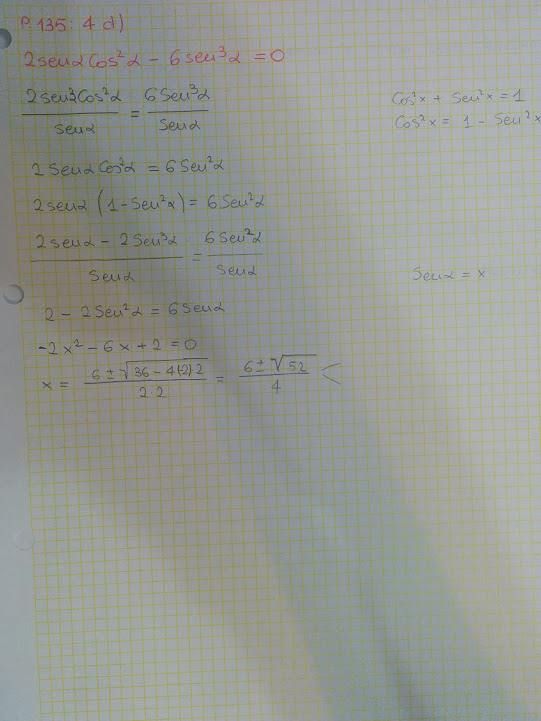 P. 135: 4 d)
2senα Cos²α - 6sen³α = 0
2sen²Cos²α / senα = 6Sen³α / Senα
Cos²x + Sen²x = 1
Cos²x = 1 - Sen²x
2Senα Cos²α = 6Sen²α
2senα (1-Sen²α) = 6Sen²α
2senα - 2Sen³α / Senα = 6Sen²α / Senα
Senα = x
2 - 2Sen²α = 6Senα
-2x² - 6x + 2 = 0
x = 6 ± √36 - 4(-2)·2 / 2·2 = 6 ± √52 / 4 <